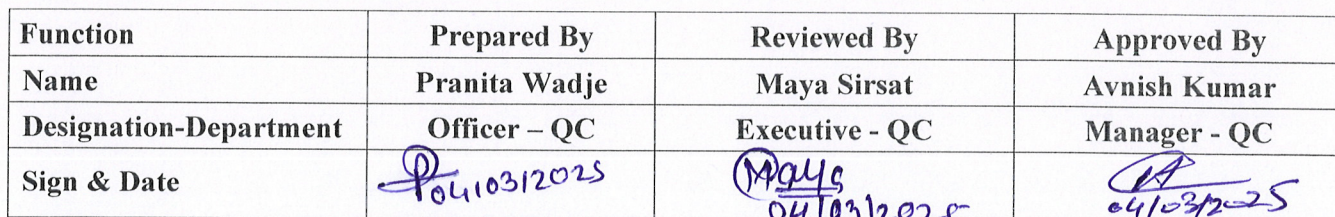 Function Prepared By Reviewed By Approved By
Name Pranita Wadje Maya Sirsat Avnish Kumar
Designation-Department Officer – QC Executive - QC Manager - QC
Sign & Date 04/03/2025 Maya 04/03/2025
04/03/2025